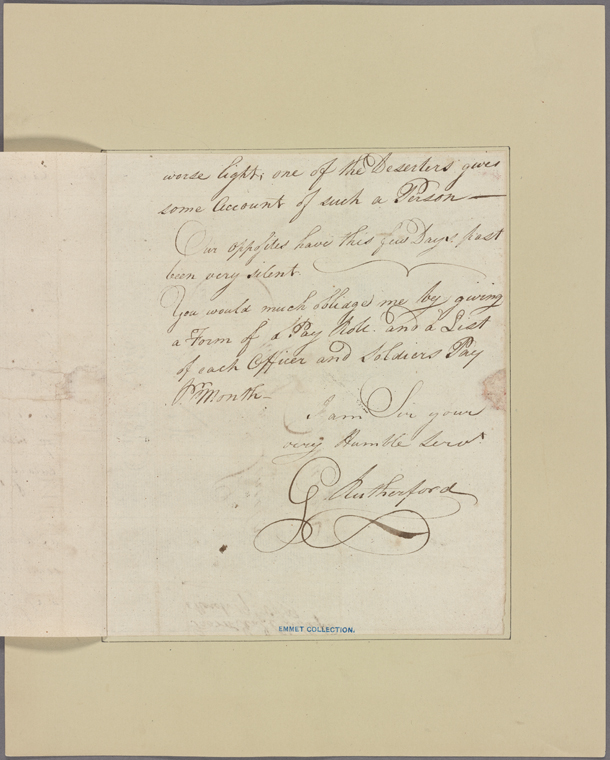 worse light; one of the Deserters gives
some Account of such a Person—
Our opposites have this few Days past
been very silent
You would much obliadge me by giving
a Form of a Pay Role. and a List
of each Officer and Soldiers Pay
Pr. Month—
I am Sir your
very Humble Servt
G Rutherford
EMMET COLLECTION.